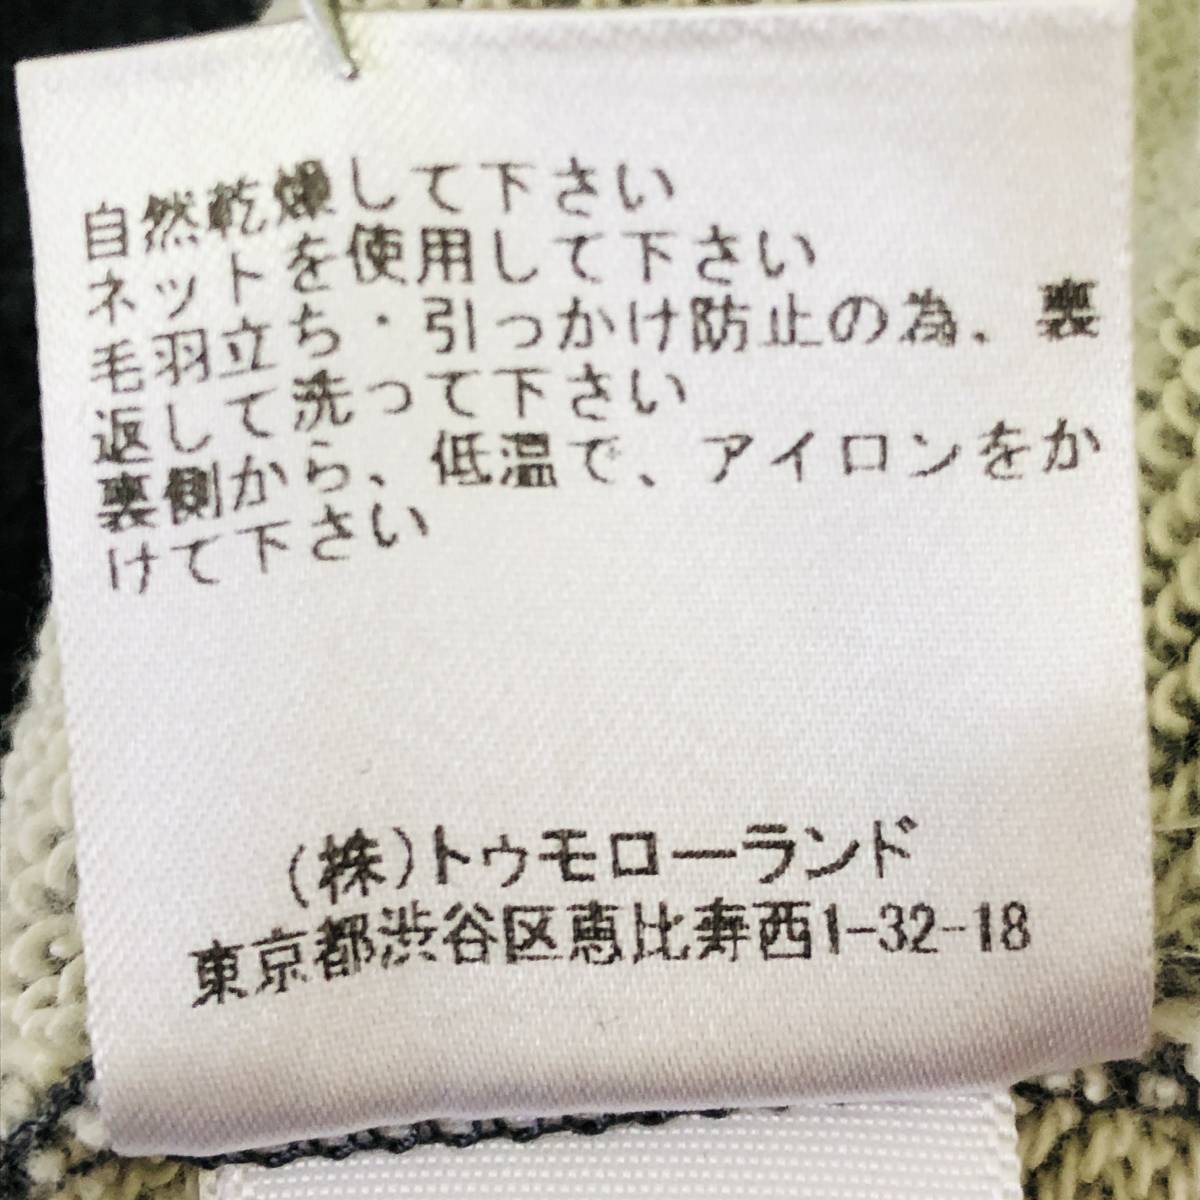 自然乾燥して下さい
ネットを使用して下さい
毛羽立ち・引っかけ防止の為、裏
返して洗って下さい
裏側から、低温で、アイロンをか
けて下さい
(株)トゥモローランド
東京都渋谷区恵比寿西1-32-18